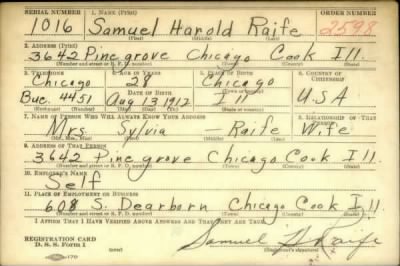 SERIAL NUMBER 1. NAME (Print) ORDER NUMBER
1016 Samuel Harold Raife 2598
(First) (Middle) (Last)
2. ADDRESS (Print)
3642 Pine grove Chicago Cook Ill
(Number and street or R. F. D. number) (Town) (County) (State)
3. TELEPHONE 4. AGE IN YEARS 5. PLACE OF BIRTH 6. COUNTRY OF CITIZENSHIP
Chicago 28 Chicago
DATE OF BIRTH (Town or county)
Buc. 4451 Aug 13 1912 Ill U.S.A
(Exchange) (Number) (Mo.) (Day) (Yr.) (State or country)
7. NAME OF PERSON WHO WILL ALWAYS KNOW YOUR ADDRESS 8. RELATIONSHIP OF THAT PERSON
Mrs Sylvia — Raife Wife
(Mr., Mrs., Miss) (First) (Middle) (Last)
9. ADDRESS OF THAT PERSON
3642 Pine grove Chicago Cook Ill.
(Number and street or R. F. D. number) (Town) (County) (State)
10. EMPLOYER'S NAME
Self
11. PLACE OF EMPLOYMENT OR BUSINESS
608 S. Dearborn Chicago Cook Ill
(Number and street or R. F. D. number) (Town) (County) (State)
I AFFIRM THAT I HAVE VERIFIED ABOVE ANSWERS AND THAT THEY ARE TRUE.
REGISTRATION CARD
D. S. S. Form 1 Samuel H Raife
(Registrant's signature)